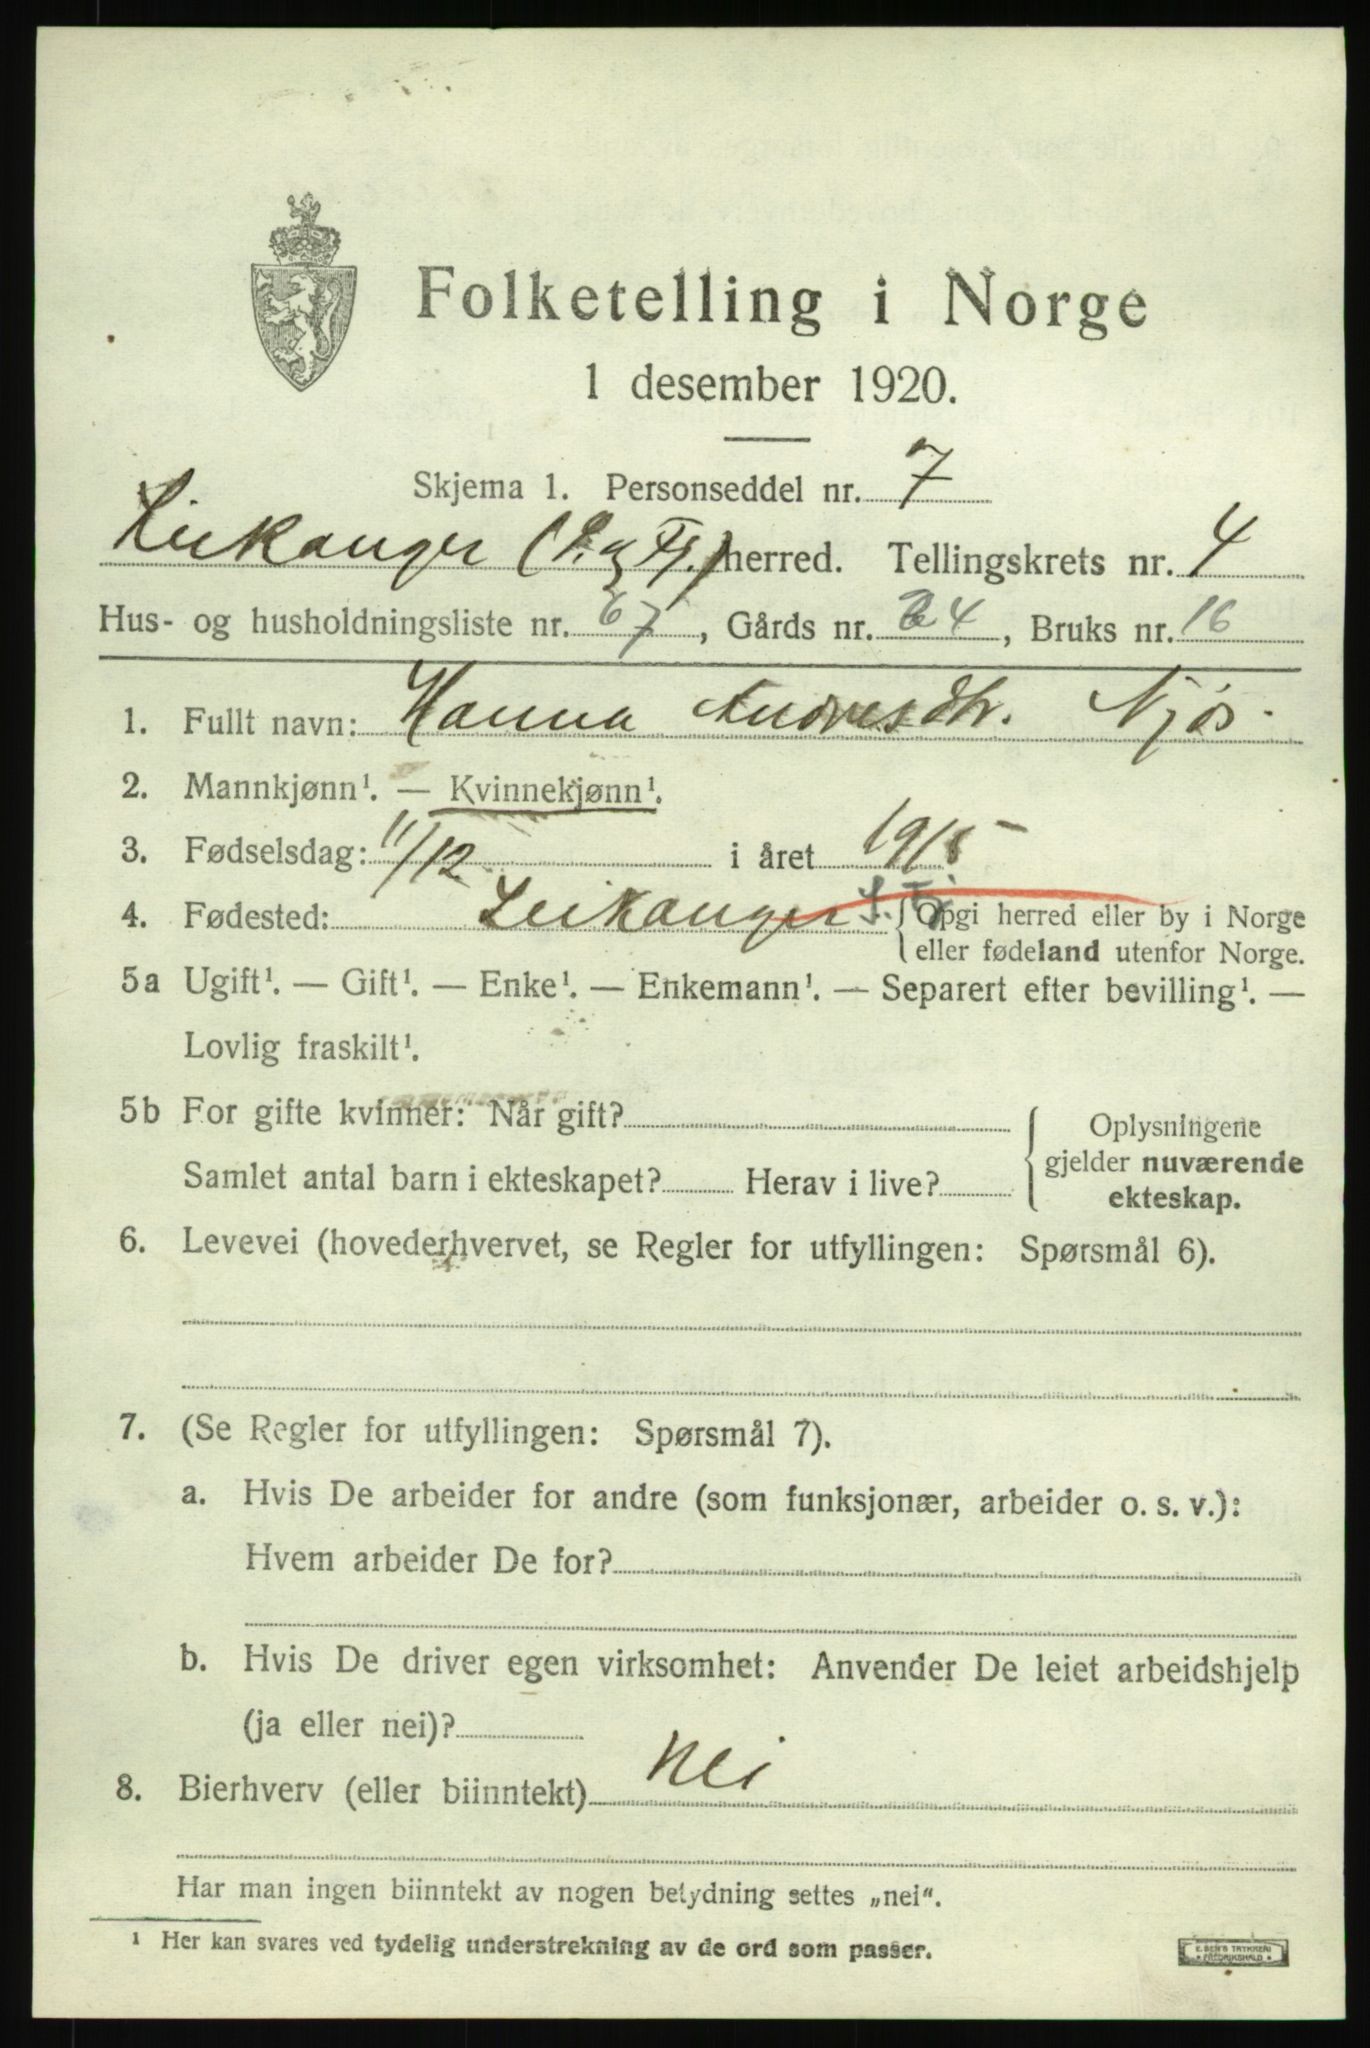 Folketelling i Norge
1 desember 1920.
Skjema 1. Personseddel nr. 7
Leikanger (S. og Fj.) herred. Tellingskrets nr. 4
Hus- og husholdningsliste nr. 67, Gårds nr. 24, Bruks nr. 16
1. Fullt navn: Hanna Andresdtr. Njøs
2. Mannkjønn¹. — Kvinnekjønn¹.
3. Fødselsdag: 11/12 i året 1915
4. Fødested: Leikanger S. Fj. Opgi herred eller by i Norge
eller fødeland utenfor Norge.
5a Ugift¹. — Gift¹. — Enke¹. — Enkemann¹. — Separert efter bevilling¹. —
Lovlig fraskilt¹.
5b For gifte kvinner: Når gift? Oplysningene
gjelder nuværende
Samlet antal barn i ekteskapet? Herav i live?
ekteskap.
6. Levevei (hovederhvervet, se Regler for utfyllingen: Spørsmål 6).
7. (Se Regler for utfyllingen: Spørsmål 7).
a. Hvis De arbeider for andre (som funksjonær, arbeider o. s. v.):
Hvem arbeider De for?
b. Hvis De driver egen virksomhet: Anvender De leiet arbeidshjelp
(ja eller nei)?
8. Bierhverv (eller biinntekt) Nei
Har man ingen biinntekt av nogen betydning settes „nei“.
¹ Her kan svares ved tydelig understrekning av de ord som passer.
E. SEM'S TRYKKERI
FREDRIKSHALD